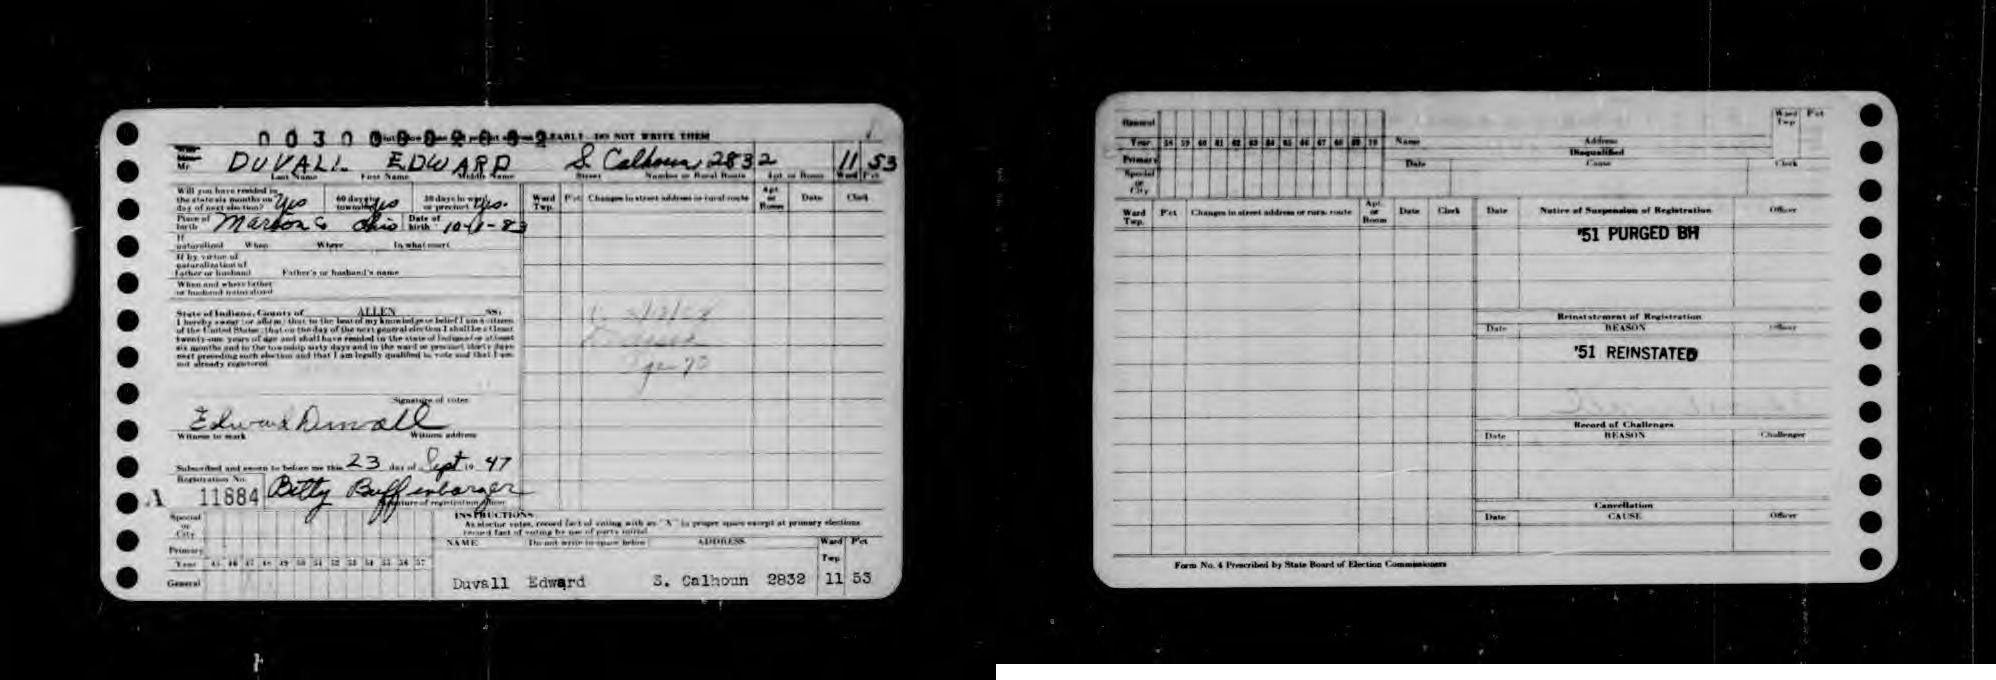 EARLY - DO NOT WRITE THEM
Mr DUVALL EDWARD S. Calhoun 2832 11 53
Last Name First Name Middle Name Street Number or Rural Route Apt. or Room Ward Pct
Will you have resided in the state six months on day of next election? Yes 60 days in township Yes 30 days in ward or precinct Yes.
Place of birth Marion Co Ohio Date of birth 10-1-83
If naturalized When Where In what court
If by virtue of naturalization of father or husband Father's or husband's name
When and where father or husband naturalized
Ward Twp. P'ct Changes in street address or rural route Apt. or Room Date Clerk
State of Indiana, County of ALLEN SS:
I hereby swear or affirm, that to the best of my knowledge or belief I am a citizen
of the United States; that on the day of the next general election I shall be at least
twenty-one years of age and shall have resided in the state of Indiana for at least
six months and in the township sixty days and in the ward or precinct thirty days
next preceding such election and that I am legally qualified to vote and that I am
not already registered
Signature of voter
Edward Duvall
Witness to mark Witness address
Subscribed and sworn to before me this 23 day of Sept 19 47
Registration No.
A 11684 Betty Buffenbarger
Signature of registration officer
INSTRUCTIONS
As elector votes, record fact of voting with an "X" in proper space except at primary elections
record fact of voting by use of party initial
Special or City
Primary
Year 45 46 47 48 49 50 51 52 53 54 55 56 57
General
NAME Do not write in space below ADDRESS Ward Twp P'ct
Duvall Edward S. Calhoun 2832 11 53
General
Year 58 59 60 61 62 63 64 65 66 67 68 69 70
Primary
Special or City
Name Address Ward Twp P'ct
Disqualified
Date Cause Clerk
Ward Twp. P'ct Changes in street address or rural route Apt. or Room Date Clerk
Date Notice of Suspension of Registration Officer
'51 PURGED BH
Reinstatement of Registration
Date REASON Officer
'51 REINSTATED
Record of Challenges
Date REASON Challenger
Cancellation
Date CAUSE Officer
Form No. 4 Prescribed by State Board of Election Commissioners